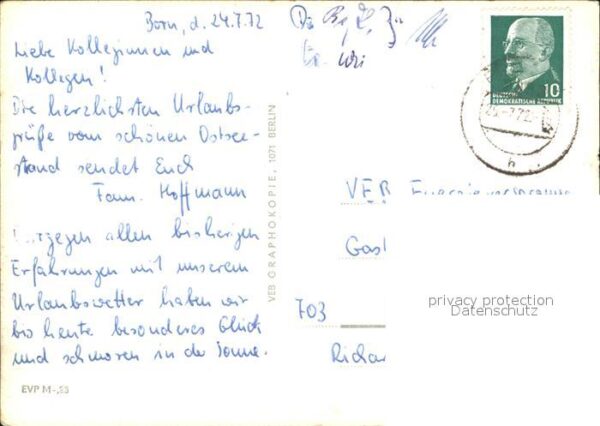 Born, d. 24.7.72
Liebe Kolleginnen und
Kollegen!
Die herzlichsten Urlaubs-
grüße vom schönen Ostsee-
stand sendet Euch
Fam. Hoffmann
Entgegen allen bisherigen
Erfahrungen mit unserem
Urlaubswetter haben wir
bis heute besonderes Glück
und schmoren in der Sonne.
EVP M -,25
VEB GRAPHOKOPIE, 1071 BERLIN
10
DEUTSCHE
DEMOKRATISCHE REPUBLIK
VEB Energieversorgung
Gas
703
Richa
privacy protection
Datenschutz